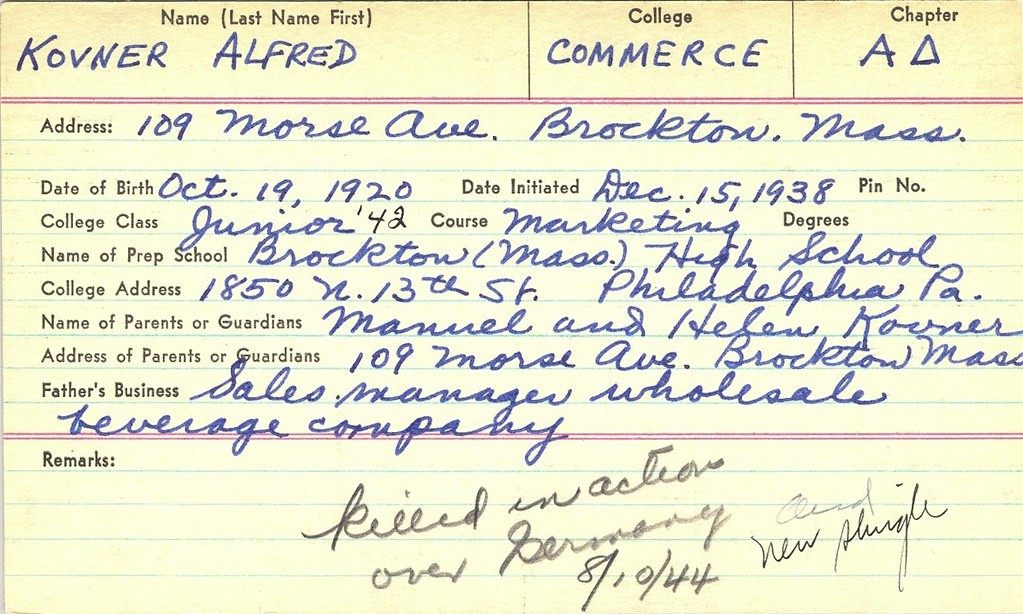 Name (Last Name First) College Chapter
KOVNER ALFRED COMMERCE A Δ
Address: 109 Morse Ave. Brockton. Mass.
Date of Birth Oct. 19, 1920 Date Initiated Dec. 15, 1938 Pin No.
College Class Junior '42 Course Marketing Degrees
Name of Prep School Brockton (Mass.) High School
College Address 1850 N. 13th St. Philadelphia Pa.
Name of Parents or Guardians Manuel and Helen Kovner
Address of Parents or Guardians 109 Morse Ave. Brockton Mass
Father's Business Sales manager wholesale
beverage company
Remarks:
killed in action
over Germany
8/10/44
and
new shingle